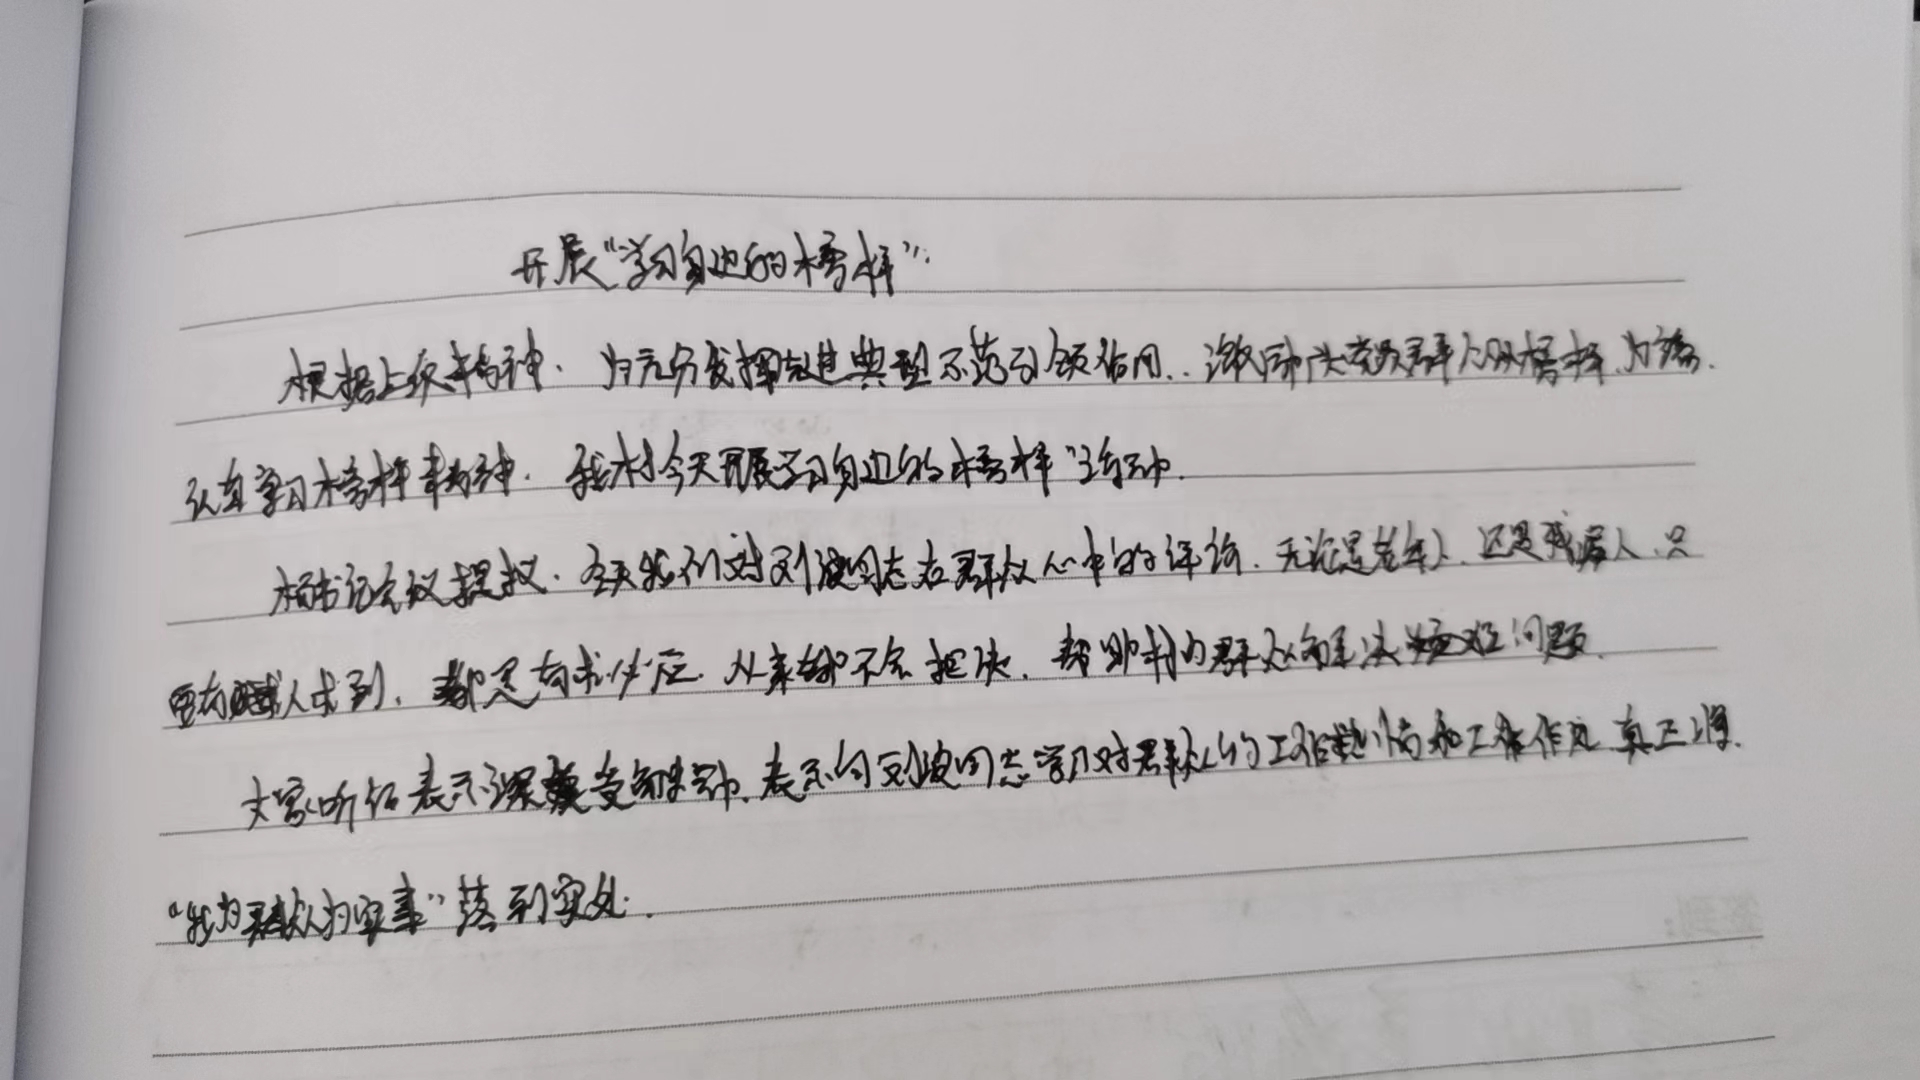 开展“学习身边的榜样”.
根据上级精神.为充分发挥先进典型示范引领作用..激励广大党员群众以榜样为镜.
认真学习榜样精神.我村今天开展学习身边的榜样”活动.
杨书记会议提议.今天我们对刘波同志在群众心中的评价.无论是老年人.还是残疾人.只
要有人求到.都是有求必应.从来都不会拒绝.帮助村内群众解决疑难问题.
大家听后表示深受触动.表示向刘波同志学习对群众的工作热情和工作作风真正将.
“我为群众办实事”落到实处.
签到: